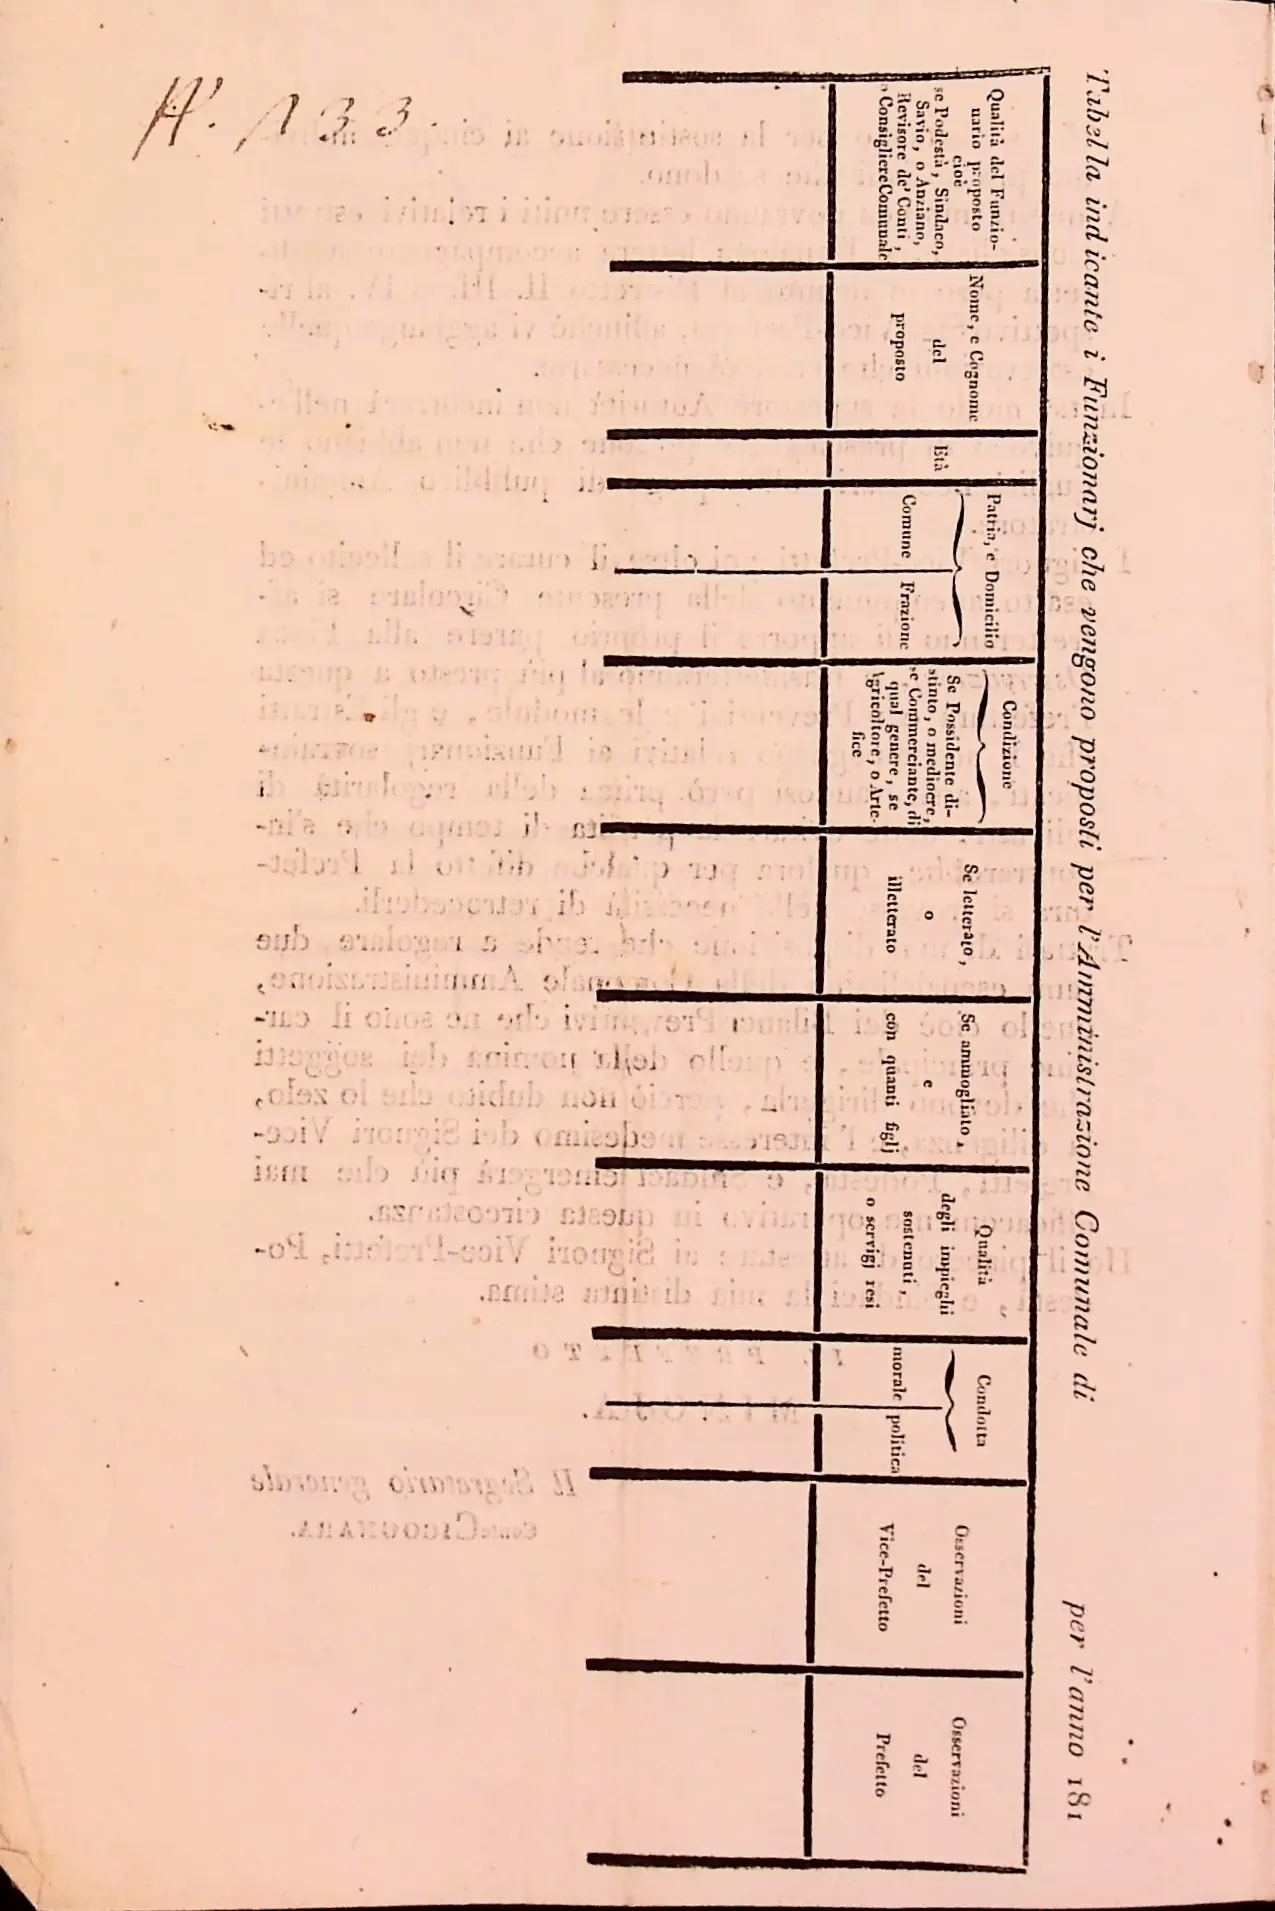 N. 133.
Tabella indicante i Funzionarj che vengono proposti per l'Amministrazione Comunale di per l'anno 181
Qualità del Funzio-
nario proposto
cioè
se Podestà, Sindaco,
Savio, o Anziano,
Revisore de' Conti,
o Consigliere Comunale
Nome, e Cognome
del
proposto
Età
Patria, e Domicilio
Comune Frazione
Condizione
Se Possidente di-
stinto, o mediocre,
se Commerciante, di
qual genere, se
Agricoltore, o Arte-
fice
Se letterato,
o
illetterato
Se ammogliato,
e
con quanti figlj
Qualità
degli impieghi
sostenuti,
o servigj resi
Condotta
morale politica
Osservazioni
del
Vice-Prefetto
Osservazioni
del
Prefetto